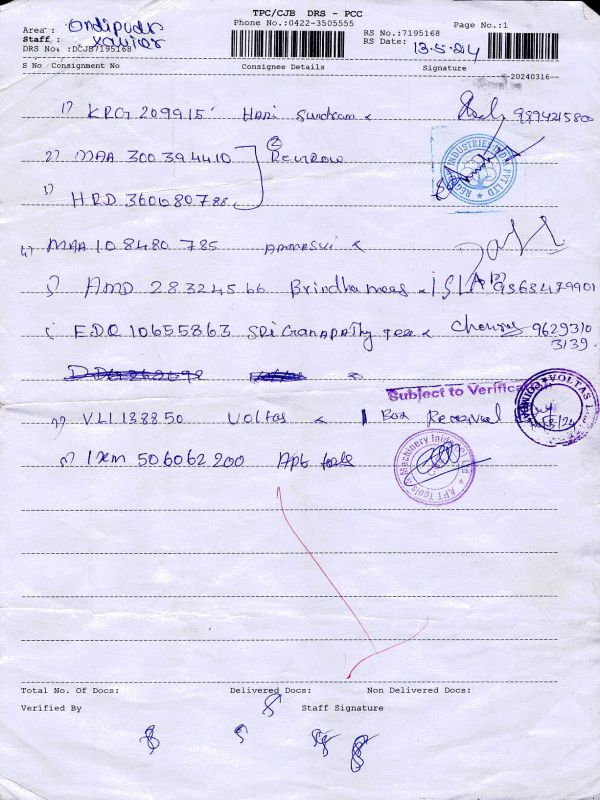 TPC/CJB DRS - PCC
Phone No.:0422-3505555
Page No.:1
Area : ondipudur
Staff : xavier
DRS No. :DCJB7195168
RS No.:7195168
RS Date: 13-5-24
S No Consignment No Consignee Details Signature
--20240316--
1) KRG 209915 Hari Sundram 9994215800
2) MAA 300394410
3) HRD 360680788
4) MAA 108480785
5) AMD 28324566 Brindha 9363479901
6) EDQ 10655863 Sri Ganapathy 9629310
3139.
Subject to Verification
7) VLI 138850 Voltas 1 Box Received
VOLTAS
8) IXM 506062200 Apt Tools
APT Tools & Machinery
Total No. Of Docs: Delivered Docs: Non Delivered Docs:
8
Verified By Staff Signature